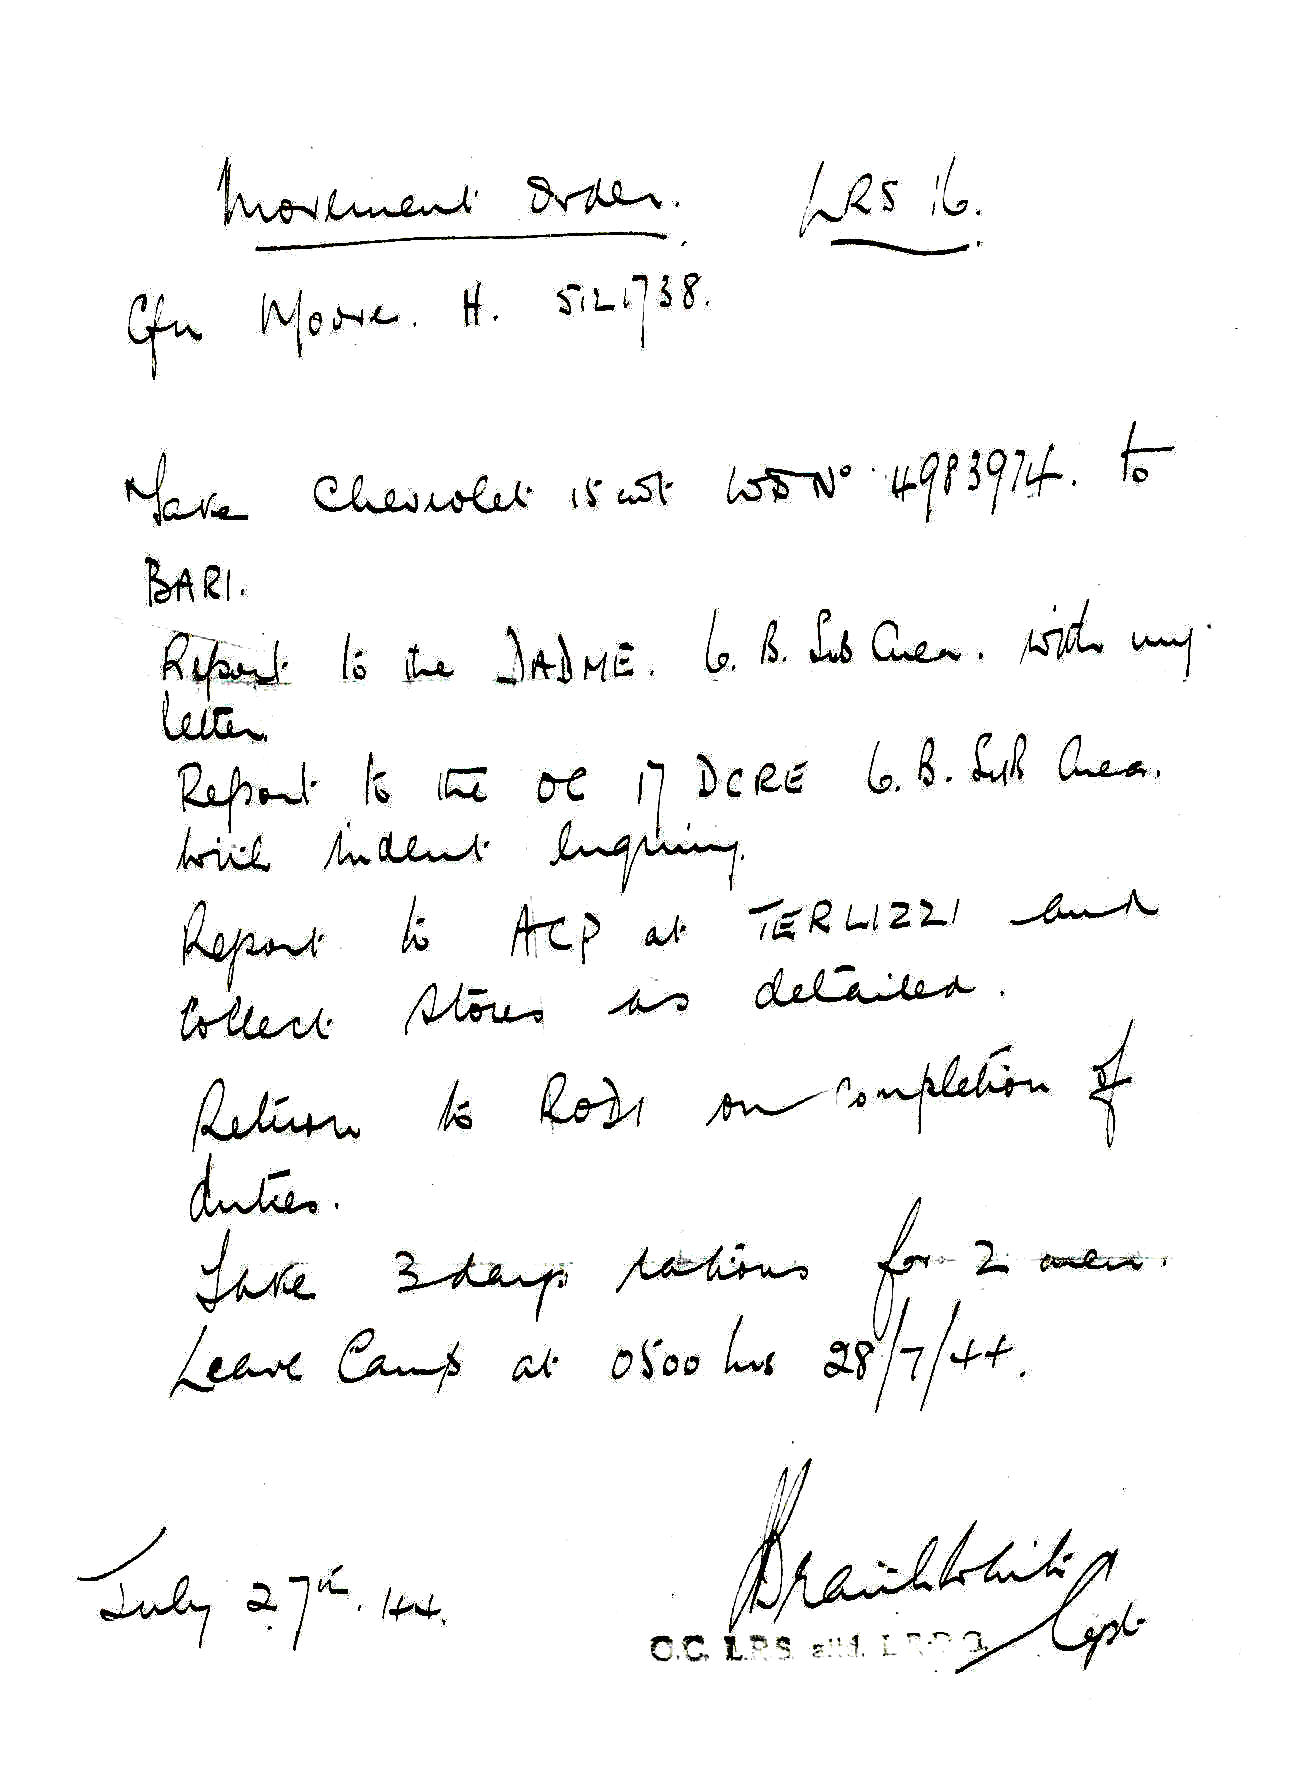 Movement Order. LRS 16.
Cfn Moore. H. 5121738.
Take Chevrolet 15 cwt WD No 4983974. to
BARI.
Report to the DADME. 6. B. Sub Area. with my
letter.
Report to the OC 17 DCRE 6. B. Sub Area.
with indent enquiring.
Report to ACP at TERLIZZI and
collect stores as detailed.
Return to RODI on completion of
duties.
Take 3 days rations for 2 men.
Leave Camp at 0500 hrs 28/7/44.
July 27th. 44.
Capt
O.C. L.R.S. attd. L.R.D.G.